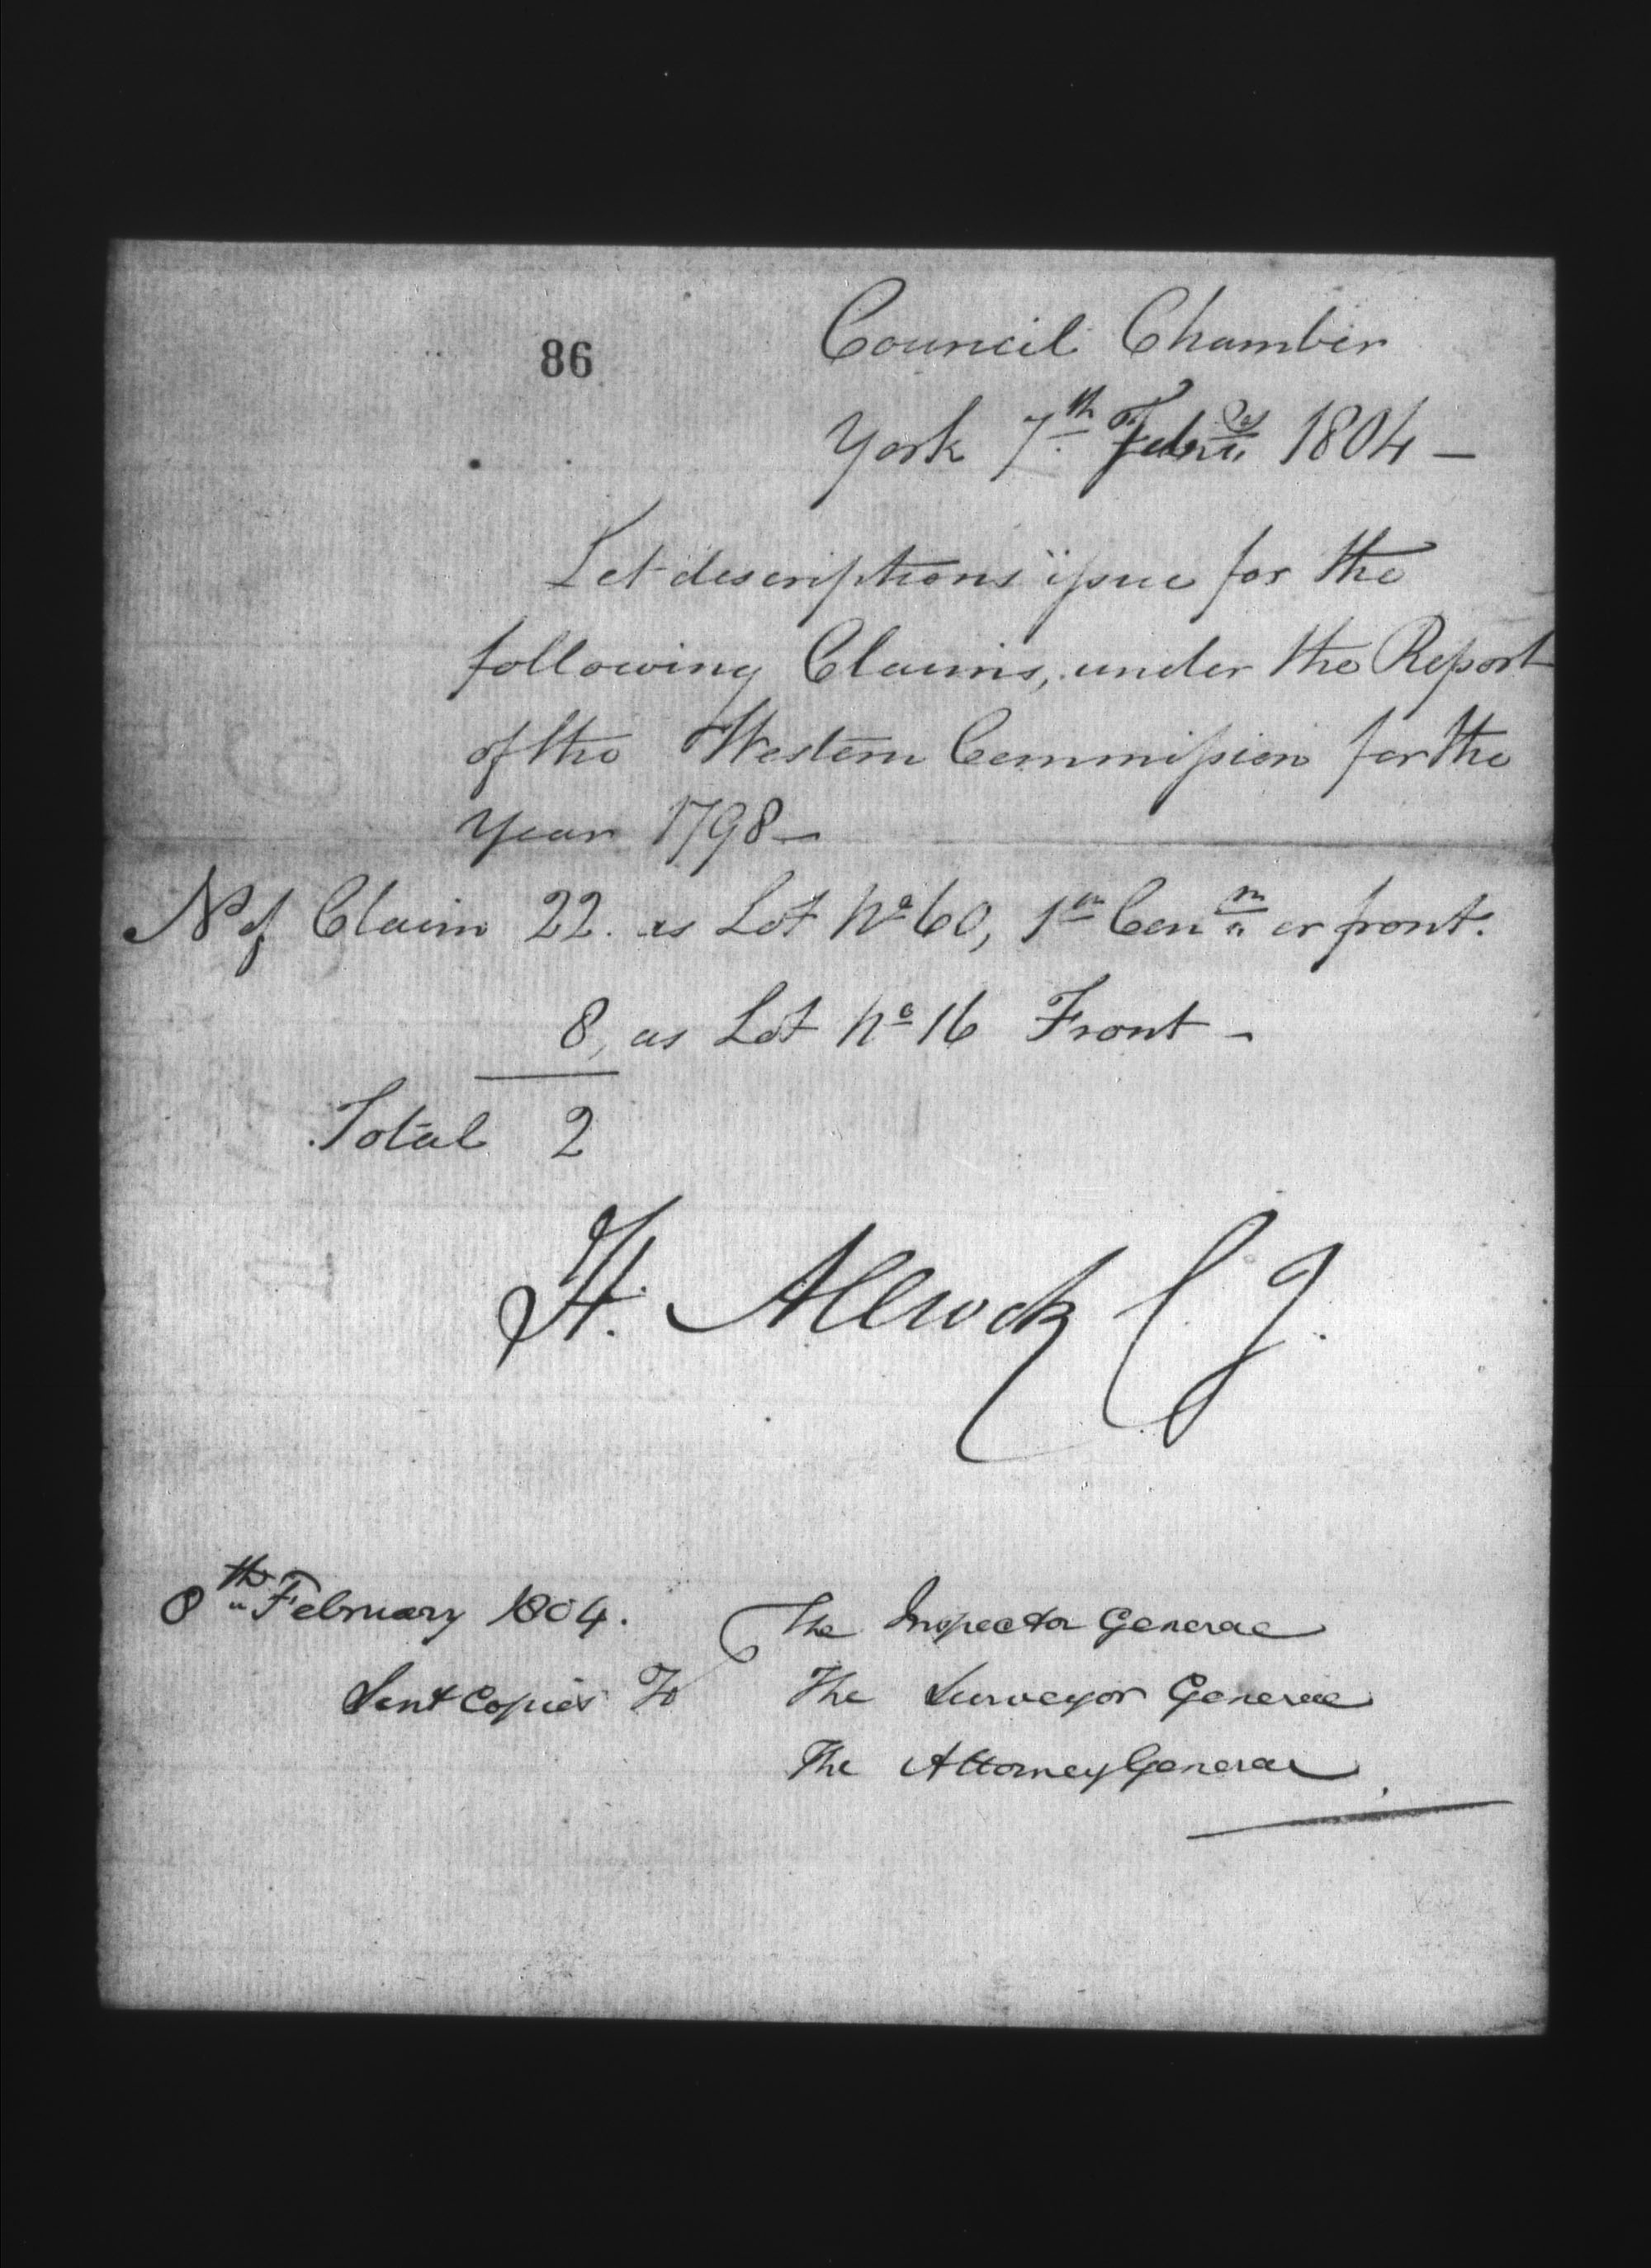 86
Council Chamber
York 7th Febry 1804 —
Let descriptions issue for the
following Claims, under the Report
of the Western Commission for the
Year 1798 —
No of Claim 22. as Lot No 60, 1st Conn or front.
8, as Lot No 16 Front —
Total 2
H. Allcock C J.
8th February 1804.
The Inspector General
Sent Copies To The Surveyor General
The Attorney General